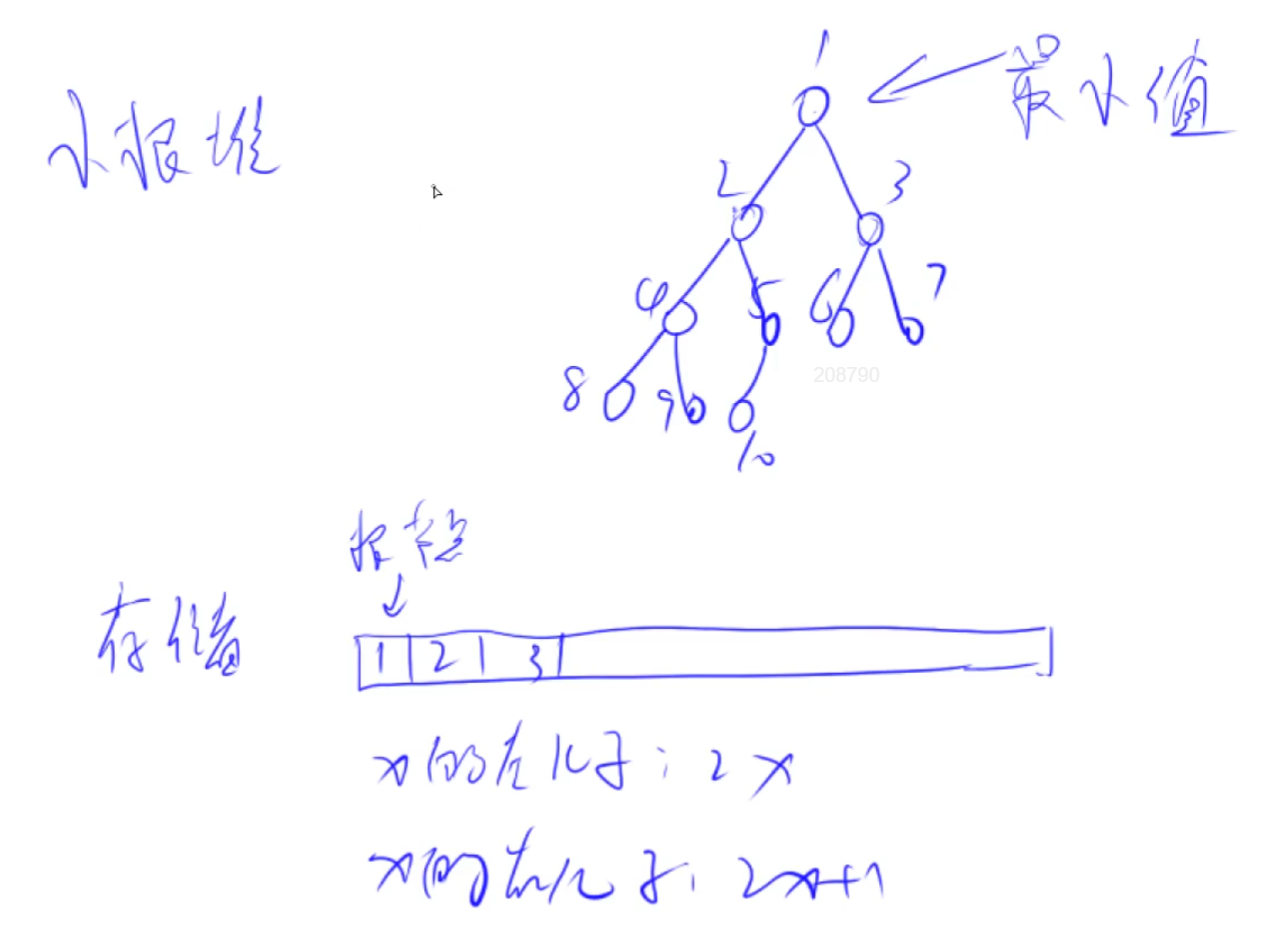 小根堆
最小值
1
2 3
4 5 6 7
8 9 10
208790
根节点
存储
1 2 3
x的左儿子: 2x
x的右儿子: 2x+1